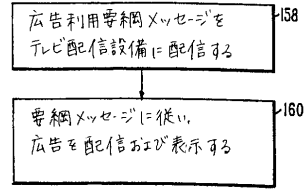 広告利用要綱メッセージを
テレビ配信設備に配信する
158
要綱メッセージに従い、
広告を配信および表示する
160